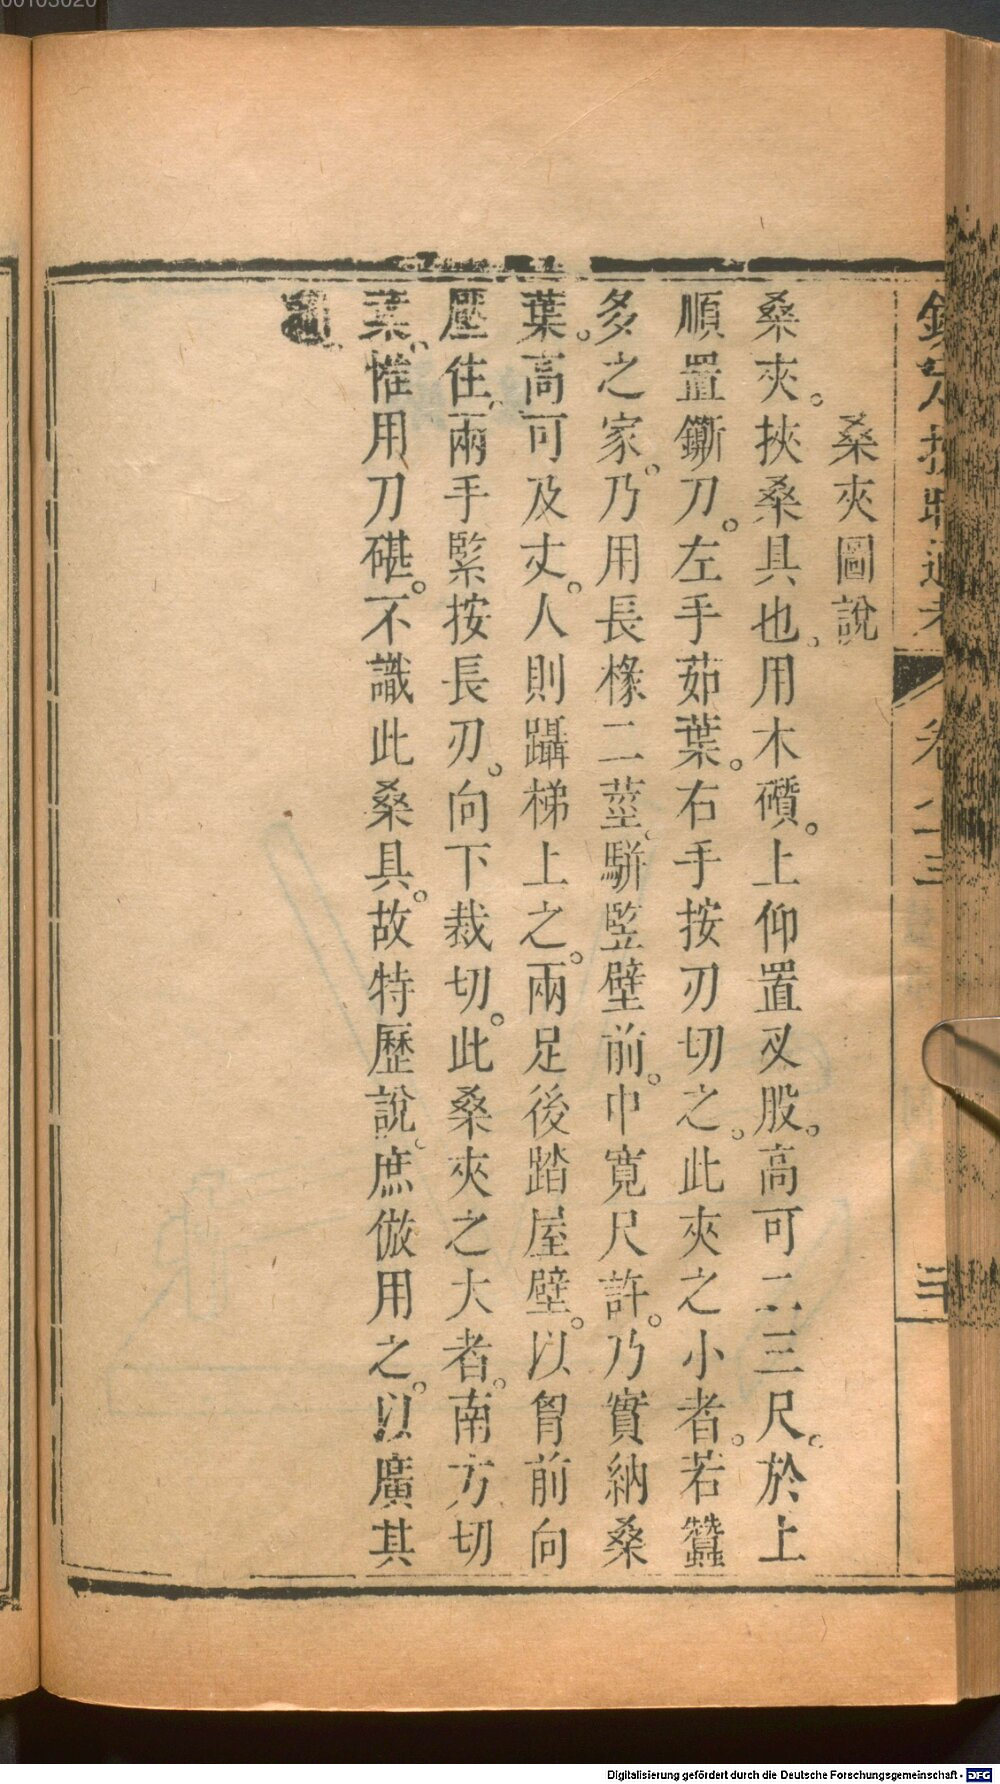 桑夾圖說
桑夾。挾桑具也。用木礩。上仰置叉股。高可二三尺。於上
順置鐁刀。左手茹葉。右手按刃切之。此夾之小者。若蠶
多之家。乃用長椽二莖、駢竪壁前。中寬尺許。乃實納桑
葉。高可及丈。人則躡梯上之。兩足後踏屋壁。以胷前向
壓住、兩手緊按長刃。向下裁切。此桑夾之大者。南方切
葉、惟用刀碪。不識此桑具。故特歷說、庶倣用之。以廣其
卷
三
Digitalisierung gefördert durch die Deutsche Forschungsgemeinschaft - DFG